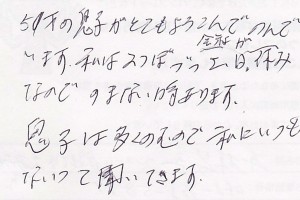 50才の息子がとてもよろこんでのんで
います。私はスっぱづっ工日、休み
全部が
なので のまない時あります。
息子は多くのむので 私にいつも
ないって聞いてきます.